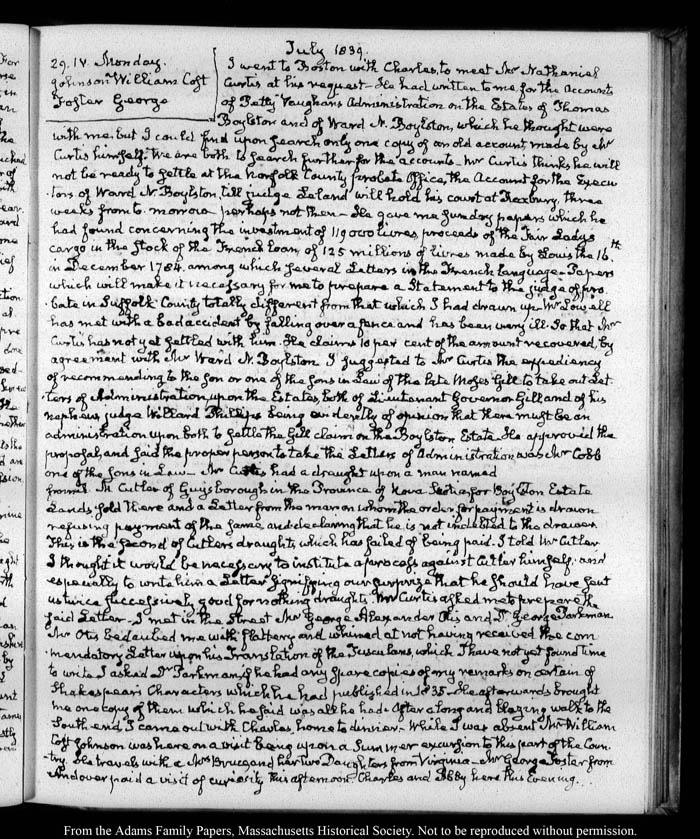 July 1839.
29. IV. Monday.
Johnson William Cost
Foster George
I went to Boston with Charles, to meet Mr Nathaniel
Curtis at his request. He had written to me for the Accounts
of Petty Vaughan's Administration on the Estates of Thomas
Boylston and of Ward N. Boylston, which he thought were
with me, but I could find upon search only one copy of an old account made by Mr
Curtis himself. We are both to search further for the accounts. Mr Curtis thinks he will
not be ready to settle at the Norfolk County probate Office, the Account for the Execu
tors of Ward N. Boylston, till judge Leland will hold his court at Roxbury, three
weeks from to-morrow perhaps not then. He gave me sundry papers which he
had found concerning the investment of 119000 livres, proceeds of the Fair Lady's
cargo in the Stock of the French loan of 125 millions of livres made by Louis the 16.th
in December 1784. among which several Letters in the French language. Papers
which will make it necessary for me to prepare a Statement to the judge of pro
bate in Suffolk County totally different from that which I had drawn up. Mr Lowell
has met with a bad accident by falling over a fence and has been very ill. So that Mr
Curtis has not yet settled with him. He claims 10 per cent of the amount recovered, by
agreement with Mr Ward N. Boylston. I suggested to Mr Curtis the expediency
of recommending to the son or one of the sons in Law of the late Moses Gill to take out Let
ters of Administration, upon the Estates, both of Lieutenant Governor Gill and of his
nephew, judge Willard Phillips being evidently of opinion that there must be an
administration upon both to settle the Gill claim on the Boylston Estate. He approved the
proposal, and said the proper person to take the Letters of Administration was Mr Cobb
one of the sons in Law. Mr Curtis had a draught upon a man named
from J. M. Cutler of Guysborough in the Province of Nova Scotia for Boylston Estate
Lands sold there and a Letter from the man on whom the order for payment is drawn
refusing payment of the same and declaring that he is not indebted to the drawer
This is the second of Cutler's draughts, which has failed of being paid. I told Mr Cutler
I thought it would be necessary to institute a process against Cutler himself. and
especially to write him a Letter signifying our surprize that he should have sent
us twice successively good for nothing draughts. Mr Curtis asked me to prepare the
said Letter. I met in the street Mr George Alexander Otis and Dr George Parkman
Mr Otis bedaubed me with flattery and whined at not having received the com
mendatory Letter upon his Translation of the Tusculans, which I have not yet found time
to write. I asked Dr Parkman, if he had any spare copies of my remarks on certain of
Shakespear's Characters which he had published in 1835. He afterwards brought
me one copy of them which he said was all he had. After a long and blazing walk to the
South-end, I came out with Charles, home to dinner. While I was absent Mr William
Cost Johnson was here on a visit being upon a summer excursion to this part of the Coun
try. He travels with a Mrs Bruce and her two Daughters from Virginia. Mr George Foster from
Andover paid a visit of curiosity this afternoon. Charles and Abby here this Evening.
From the Adams Family Papers, Massachusetts Historical Society. Not to be reproduced without permission.